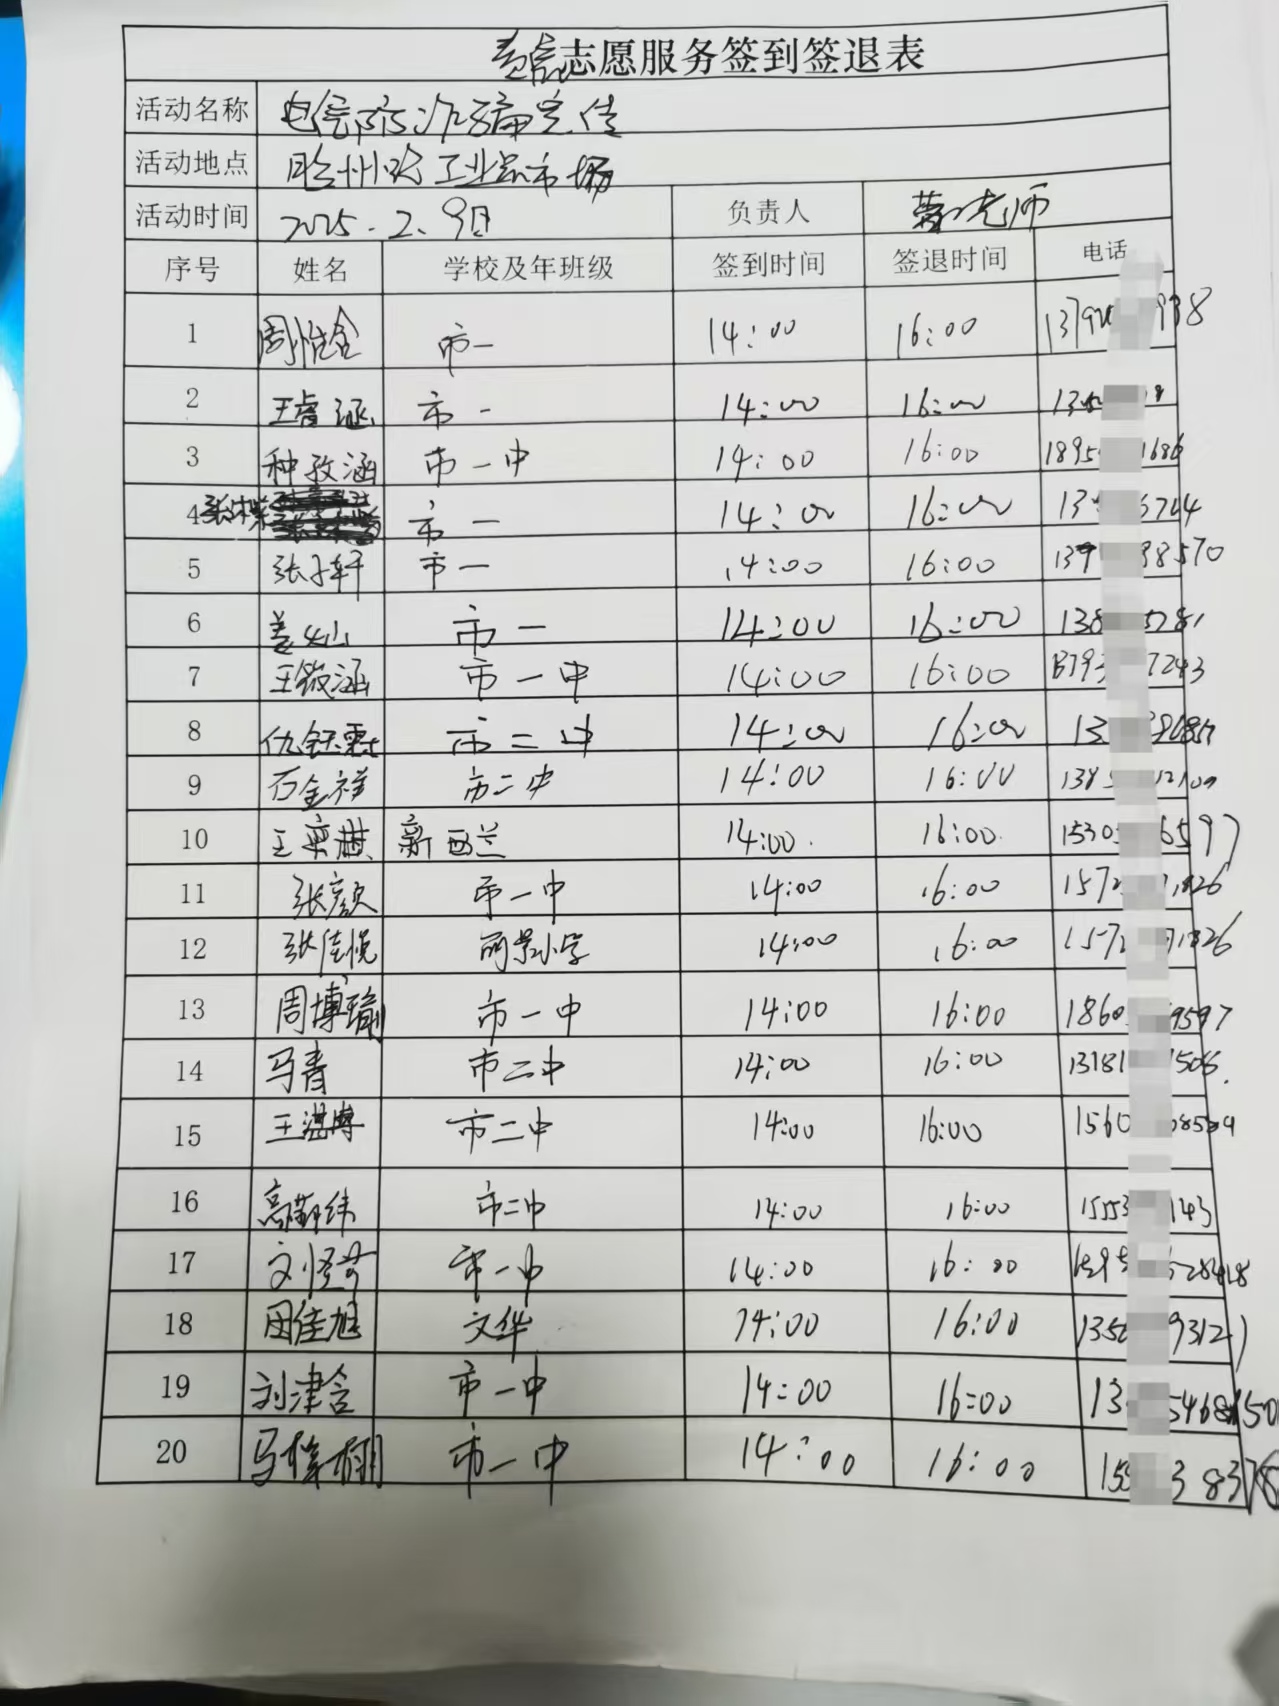 志愿服务签到签退表
活动名称 电信防诈骗宣传
活动地点 胶州路工业品市场
活动时间 2025.2.9日 负责人 老师
序号 姓名 学校及年班级 签到时间 签退时间 电话
1 周怡含 市一 14:00 16:00
2 王睿涵 市一 14:00 16:00
3 种孜涵 市一中 14:00 16:00 1895 1686
4 市一 14:00 16:00 6744
5 张子轩 市一 14:00 16:00 139 38570
6 姜 市一 14:00 16:00 138 5781
7 王筱涵 市一中 14:00 16:00 1793 7243
8 仇钰霖 市二中 14:00 16:00 13
9 石金祥 市二中 14:00 16:00 138
10 王奕祺 新西兰 14:00 16:00 1530 6597
11 张颜 市一中 14:00 16:00 157 1826
12 张佳悦 丽景小学 14:00 16:00 157 1826
13 周博瑜 市一中 14:00 16:00 1860 9597
14 马青 市二中 14:00 16:00 13181 1506
15 王湛博 市二中 14:00 16:00 1560
16 高 纬 市二中 14:00 16:00 15553 143
17 文怪 市一中 14:00 16:00
18 田佳旭 文华 14:00 16:00 1350 9312
19 刘津含 市一中 14:00 16:00 13 5468
20 马梓栩 市一中 14:00 16:00 155 3 8378